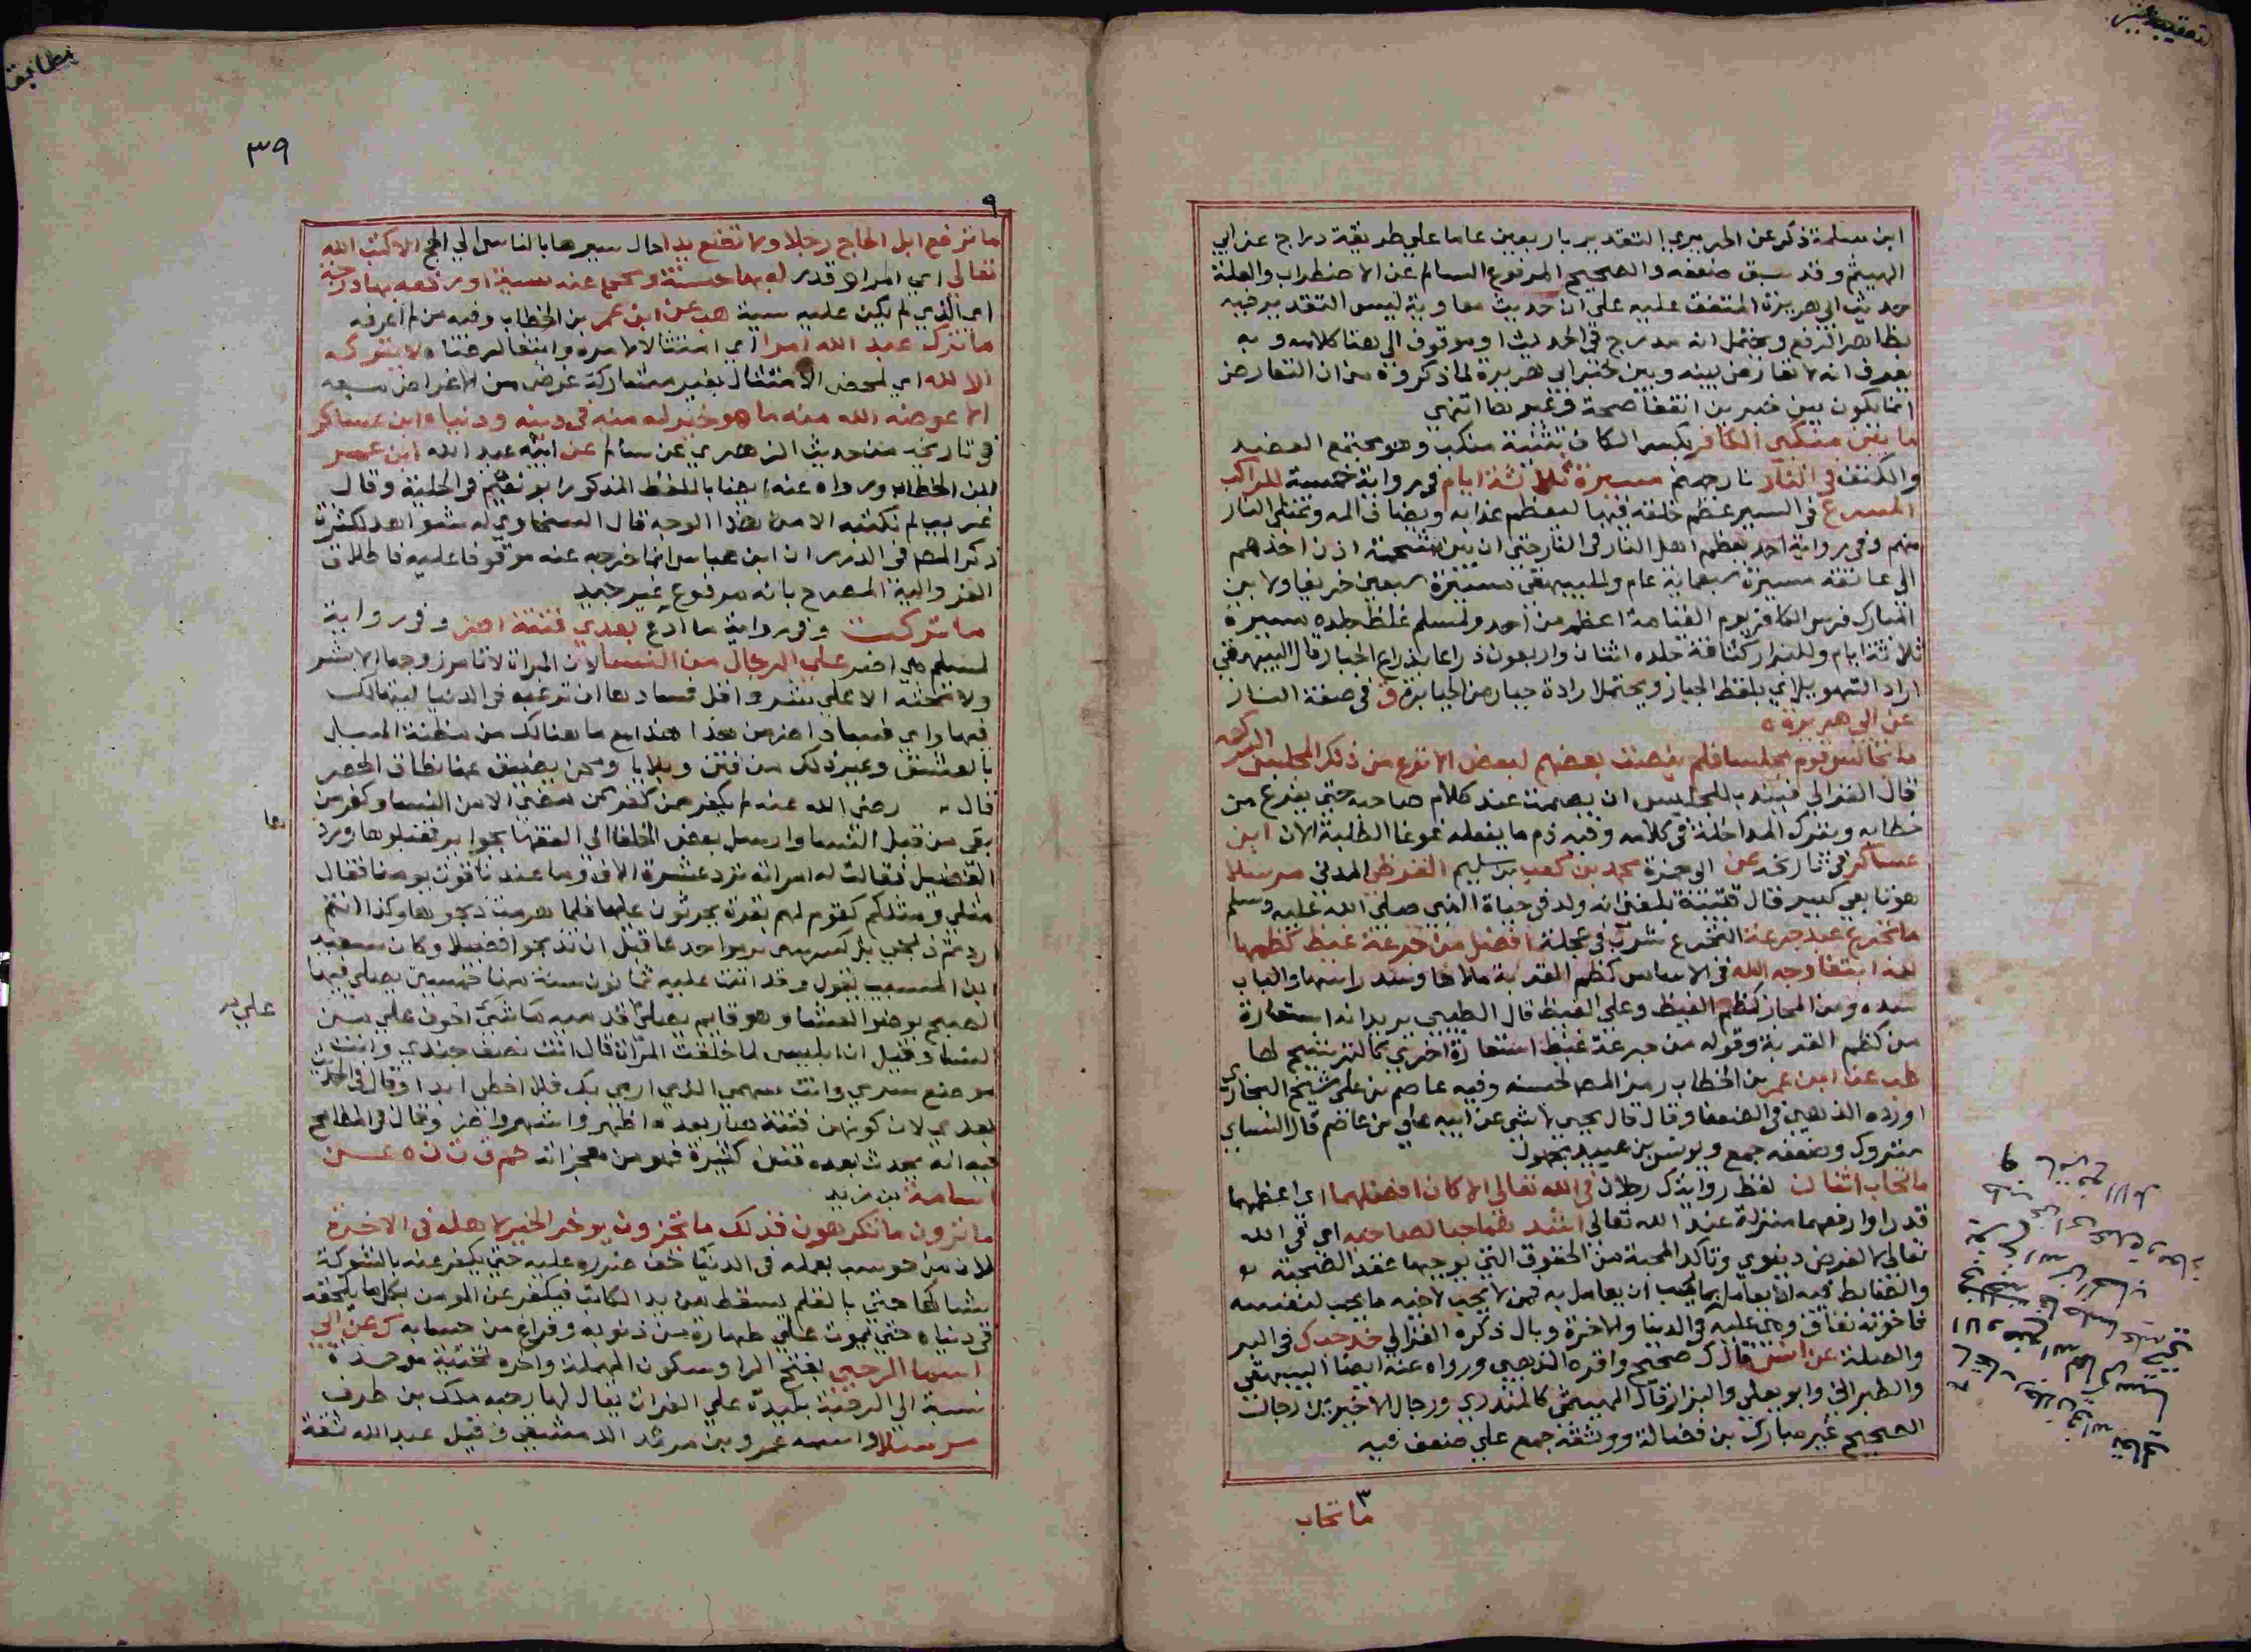 ابن سلمة ذكر عن الحريري التقدير باربعين عاما على طريقة دراج عن ابي
الهيثم وقد سبق ضعفه والصحيح المرفوع السالم عن الاضطراب والعلة
حديث ابي هريرة المتفق عليه على ان حديث معاوية ليس التقدير فيه
بظاهر الرفع ويحتمل انه مدرج في الحديث او موقوف الى هنا كلامه وبه
يعرف انه لا تعارض بينه وبين خبر ابي هريرة لما ذكروه من ان التعارض
انما يكون بين خبرين اتفقا صحة وغيرها انتهى
ما بين منكبي الكافر بكسر الكاف تثنية منكب وهو مجتمع العضد
والكتف في النار نار جهنم مسيرة ثلاثة ايام في رواية خمسة للراكب
المسرع في السير عظم خلقه فيها ليعظم عذابه ويضاف المه وتمتلي النار
منهم وفي رواية احمد يعظم اهل النار في النار حتى ان بين شحمة اذن احدهم
الى عاتقه مسيرة سبعماية عام وللبيهقي مسيرة سبعين خريفا ولابن
المبارك ضرس الكافر يوم القيامة اعظم من احد ولمسلم غلظ جلده مسيرة
ثلاثة ايام وللبزار كثافة جلده اثنان واربعون ذراعا بذراع الجبار قال البيهقي
اراد التهويل اي بلفظ الجبار ويحتمل ارادة جبار من الجبابرة ق في صفة النار
عن ابي هريرة
ما تجالس قوم مجلسا فلم ينصت بعضهم لبعض الا نزع من ذلك المجلس البركة
قال الغزالي فيندب للجليس ان يصمت عند كلام صاحبه حتى يفرغ من
خطابه ويترك المداخلة في كلامه وفيه ذم ما يفعله غوغا الطلبة الان ابن
عساكر في تاريخه عن ابي حمزة محمد بن كعب بن سليم القرظي المدني مرسلا
هو تابعي كبير قال قتيبة بلغني انه ولد في حياة النبي صلى الله عليه وسلم
ما تجرع عبد جرعة التجرع شرب في عجلة افضل من جرعة غيظ كظمها
لله ابتغا وجه الله في الاساس كظم القربة ملاها وسد راسها والباب
سده ومن المجاز كظم الغيظ وعلى الغيظ قال الطيبي يريد انه استعارة
من كظم القربة وقوله من جرعة غيظ استعارة اخرى كالترشيح لها
طب عن ابن عمر بن الخطاب رمز المصه لحسنه وفيه عاصم بن علي شيخ البخاري
اورده الذهبي في الضعفا وقال قال يحيى لا شي عن ابيه علي بن عاصم قال النساي
متروك وضعفه جمع ويونس بن عبيد مجهول
ما تحاب اثنان لفظ رواية ك رجلان في الله تعالى الا كان افضلهما اي اعظمهما
قدرا وارفعهما منزلة عند الله تعالى اشد هما حبا لصاحبه اي في الله
تعالى لا لغرض دنيوي وتاكد المحبة من الحقوق التي يوجبها عقد الصحبة
والضابط فيه ان يعامله بما يحب ان يعامل به فمن لا يحب لاخيه ما يحب لنفسه
فاخوته نفاق وهي عليه في الدنيا والاخرة وبال ذكره الغزالي خد حب ك في البر
والصلة عن انس قال ك صحيح واقره الذهبي ورواه عنه ايضا البيهقي
والطبراني وابو يعلى والبزار قال الهيثمي كالمنذري ورجال الاخيرين رجال
الصحيح غير مبارك بن فضالة ووثقه جمع على ضعف فيه
ما تحاب
٣٩
٩
ما ترفع ابل الحاج رجلا ولا تضع يدا حال سيرها بالناس الى الحج الا كتب الله
تعالى اي امر او قدر له بها حسنة ومحي عنه سيئة او رفعه بها درجة
اي الذي لم يكن عليه سيئة هب عن ابن عمر بن الخطاب وفيه من لم اعرفه
ما ترك عبد الله امرا اي امتثالا لامره وابتغا لرضاه لا يتركه
الا لله اي لمحض الامتثال بغير مشاركة غرض من الاغراض معه
الا عوضه الله منه ما هو خير له منه في دينه ودنياه ابن عساكر
في تاريخه من حديث الزهري عن سالم عن ابيه عبد الله ابن عمر
بن الخطاب ورواه عنه ايضا باللفظ المذكور ابو نعيم في الحلية وقال
غريب لم نكتبه الا من هذا الوجه قال السخاوي له شواهد لكثرة
ذكر المصه في الدرر ان ابن عباس انما خرجه عنه موقوفا عليه فاطلاق
العزو اليه المصرح بانه مرفوع غير جيد
ما تركت وفي رواية ما ادع بعدي فتنة اضر وفي رواية
لمسلم هي اضر على الرجال من النسا لان المراة لا تامر زوجها الا بشر
ولا تحثه الا على شر واقل فسادها ان ترغبه في الدنيا ليتهالك
فيها واي فساد اضر من هذا هذا مع ما هنالك من مظنة الميل
بالعشق وغير ذلك من فتن وبلايا ومحن يضيق عنها نطاق الحصر
قال رضي الله عنه لم يكفر من كفر ممن مضى الا من النسا وكفر من
بقي من قبل النسا وارسل بعض الخلفا الى الفقها بجوايز فقبلوها وردها
الفضيل فقالت له امراته ترد عشرة الاف وما عندنا قوت يومنا فقال
مثلي ومثلكم كقوم لهم بقرة يحرثون عليها فلما هرمت ذبحوها وكذا انتم
اردتم ذبحي على كبر سني موتوا جوعا قبل ان تذبحوا فضيلا وكان سعيد
ابن المسيب يقول وقد اتت عليه ثمانون سنة منها خمسين يصلي فيها
الصبح بوضو العشا وهو قايم يصلي على قدميه ما شي اخوف علي من
النسا وقيل ان ابليس لما خلقت المراة قال انت نصف جندي وانت
موضع سري وانت سهمي الذي ارمي بك فلا اخطي ابدا وقال في الحديث
بعدي لان كونهن فتنة صار بعده اظهر واشهر واضر وقال في المطامح
فيه انه يحدث بعده فتن كثيرة فهو من معجزاته حم ق ت ن ه عن
اسامة بن زيد
ما ترون ما تكرهون فذلك ما تجزون يوخر الخير لاهله في الاخرة
لان من حوسب بعمله في الدنيا خف ضرره عليه حتى يكفر عنه بالشوكة
يشاكها حتى بالقلم يسقط من يد الكاتب فيكفر عن المومن بكل ما يلحقه
في دنياه حتى يموت على طهارة من ذنوبه وفراغ من حسابه ك عن ابي
اسما الرحبي بفتح الرا وسكون المهملة واخره تحتية موحدة
نسبة الى الرحبة بليدة على الفرات يقال لها رحبة ملك بن طوق
مرسلا واسمه عمرو بن مرثد الدمشقي وقيل عبد الله ثقة